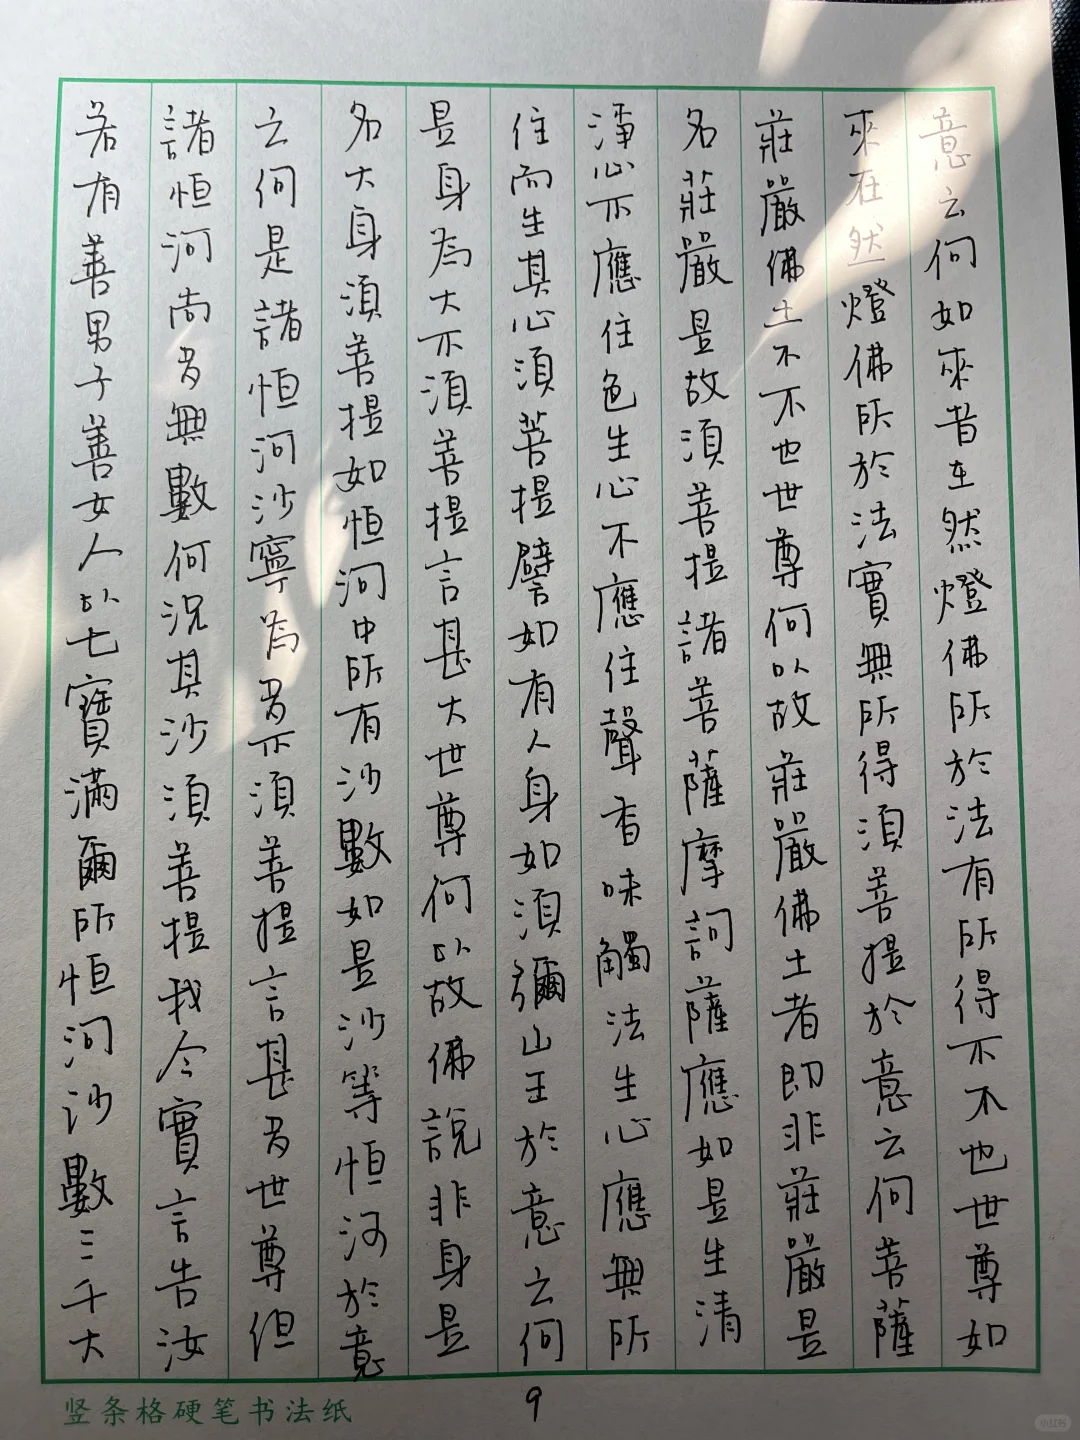 意云何如來昔在然燈佛所於法有所得不不也世尊如
來在然燈佛所於法實無所得須菩提於意云何菩薩
莊嚴佛土不不也世尊何以故莊嚴佛土者即非莊嚴是
名莊嚴是故須菩提諸菩薩摩訶薩應如是生清
淨心不應住色生心不應住聲香味觸法生心應無所
住而生其心須菩提譬如有人身如須彌山王於意云何
是身為大不須菩提言甚大世尊何以故佛說非身是
名大身須菩提如恒河中所有沙數如是沙等恒河於意
云何是諸恒河沙寧為多不須菩提言甚多世尊但
諸恒河尚多無數何況其沙須菩提我今實言告汝
若有善男子善女人以七寶滿爾所恒河沙數三千大
竖条格硬笔书法纸
9
小红书